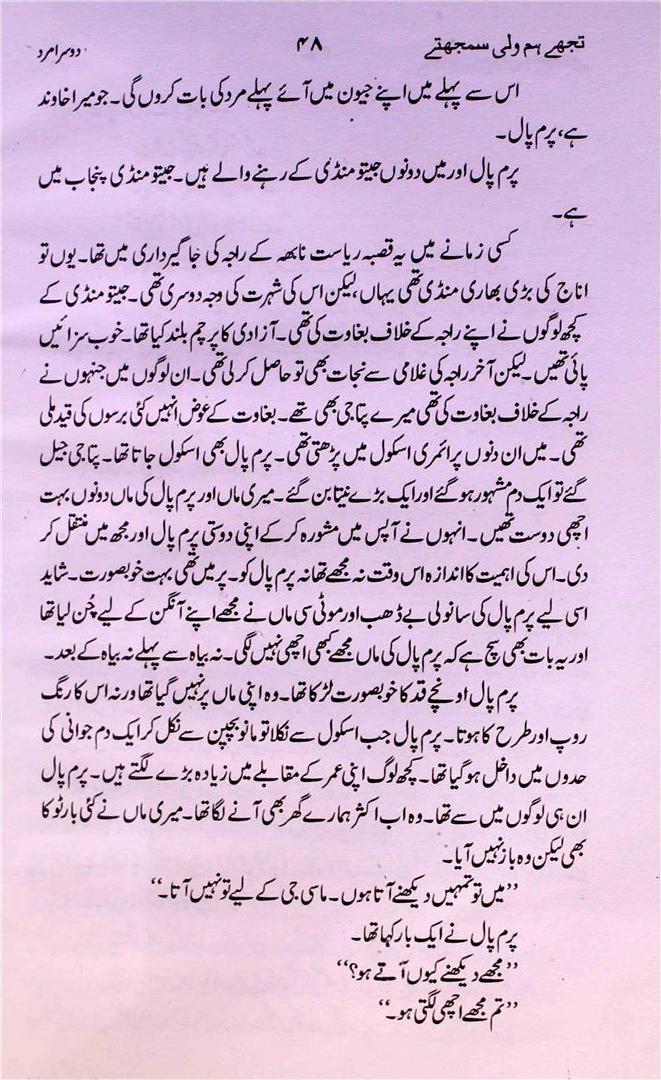 تجھے ہم ولی سمجھتے ۴۸ دوسرا مرد
اس سے پہلے میں اپنے جیون میں آئے پہلے مرد کی بات کروں گی۔ جو میرا خاوند
ہے، پرم پال۔
پرم پال اور میں دونوں جیتو منڈی کے رہنے والے ہیں۔ جیتو منڈی پنجاب میں
ہے۔
کسی زمانے میں یہ قصبہ ریاست نابھہ کے راجہ کی جاگیرداری میں تھا۔ یوں تو
اناج کی بڑی بھاری منڈی تھی یہاں، لیکن اس کی شہرت کی وجہ دوسری تھی۔ جیتو منڈی کے
کچھ لوگوں نے اپنے راجہ کے خلاف بغاوت کی تھی۔ آزادی کا پرچم بلند کیا تھا۔ خوب سزائیں
پائی تھیں۔ لیکن آخر راجہ کی غلامی سے نجات بھی تو حاصل کر لی تھی۔ ان لوگوں میں جنہوں نے
راجہ کے خلاف بغاوت کی تھی میرے پتا جی بھی تھے۔ بغاوت کے عوض انہیں کئی برسوں کی قید ملی
تھی۔ میں ان دنوں پرائمری اسکول میں پڑھتی تھی۔ پرم پال بھی اسکول جاتا تھا۔ پتا جی جیل
گئے تو ایک دم مشہور ہو گئے اور ایک بڑے نیتا بن گئے۔ میری ماں اور پرم پال کی ماں دونوں بہت
اچھی دوست تھیں۔ انہوں نے آپس میں مشورہ کر کے اپنی دوستی پرم پال اور مجھ میں منتقل کر
دی۔ اس کی اہمیت کا اندازہ اس وقت نہ مجھے تھا نہ پرم پال کو۔ پر میں تھی بہت خوبصورت۔ شاید
اسی لیے پرم پال کی سانولی بے ڈھب اور موٹی سی ماں نے مجھے اپنے آنگن کے لیے چُن لیا تھا
اور یہ بات بھی سچ ہے کہ پرم پال کی ماں مجھے کبھی اچھی نہیں لگی۔ نہ بیاہ سے پہلے نہ بیاہ کے بعد۔
پرم پال اونچے قد کا خوبصورت لڑکا تھا۔ وہ اپنی ماں پر نہیں گیا تھا ورنہ اس کا رنگ
روپ اور طرح کا ہوتا۔ پرم پال جب اسکول سے نکلا تو مانو بچپن سے نکل کر ایک دم جوانی کی
حدوں میں داخل ہو گیا تھا۔ کچھ لوگ اپنی عمر کے مقابلے میں زیادہ بڑے لگتے ہیں۔ پرم پال
ان ہی لوگوں میں سے تھا۔ وہ اب اکثر ہمارے گھر بھی آنے لگا تھا۔ میری ماں نے کئی بار ٹوکا
بھی لیکن وہ باز نہیں آیا۔
”میں تو تمہیں دیکھنے آتا ہوں۔ ماسی جی کے لیے تو نہیں آتا۔“
پرم پال نے ایک بار کہا تھا۔
”مجھے دیکھنے کیوں آتے ہو؟“
”تم مجھے اچھی لگتی ہو۔“